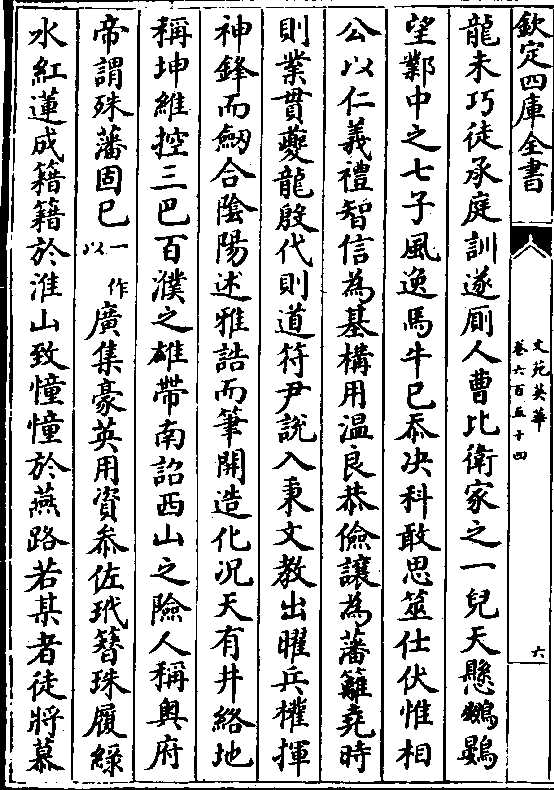 欽定四庫全書
文苑英華
卷六百五十四
六
龍未巧徒承庭訓遂厠人曹比衛家之一兒天懸鸘鷃
望鄴中之七子風逸馬牛已忝决科敢思筮仕伏惟相
公以仁義禮智信為基構用温良恭儉讓為藩籬堯時
則業貫夔龍殷代則道符尹說入秉文教出曜兵權揮
神鋒而劒合陰陽述雅誥而筆開造化况天有井絡地
稱坤維控三巴百濮之雄帶南詔西山之險人稱奥府
帝謂殊藩固已一作以廣集豪英用資叅佐玳簪珠履緑
水紅蓮成籍籍於淮山致憧憧於燕路若某者徒將慕